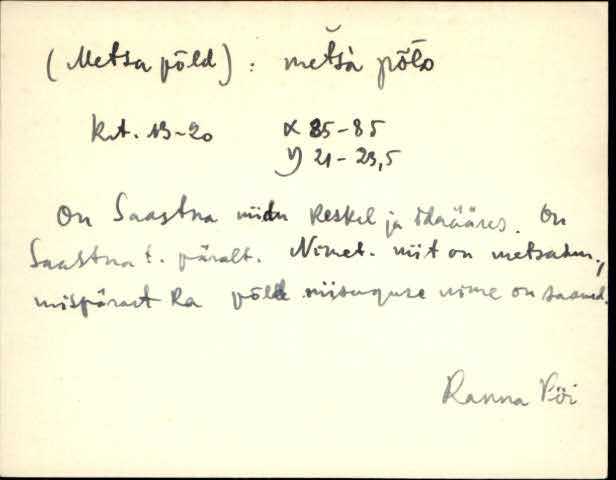 (Metsa põld) : metsà põlo
Krt. 13-20 x 85-85
y) 21-23,5
On Saastna niidu keskel ja idaääres. On
Saastna t. päralt. Nimet. niit on metsatum.,
mispärast ka põld niisuguse nime on saanud.
Ranna Pöi